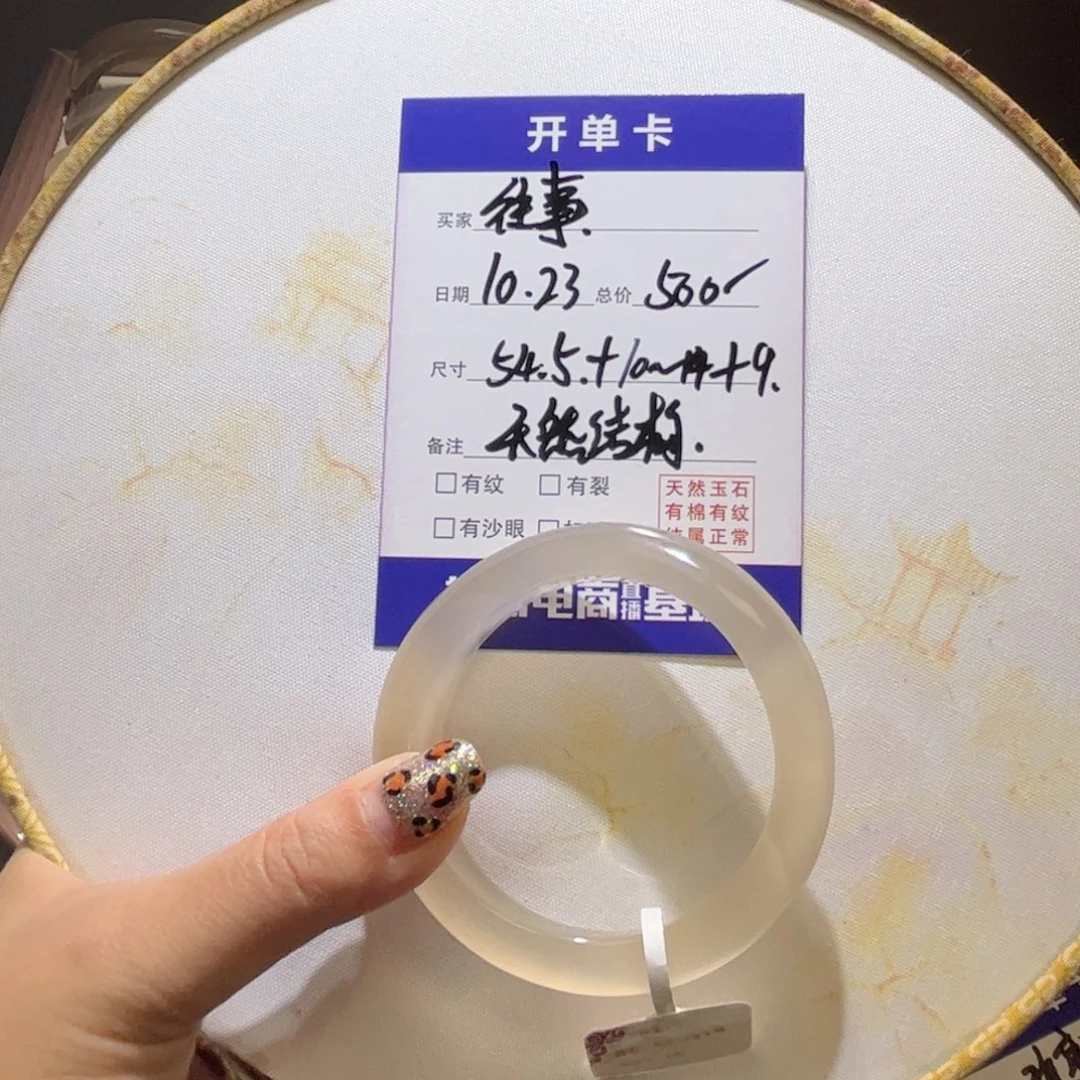 开单卡
买家 往事.
日期 10.23 总价 500
尺寸 54.5.+10
备注 天然结构.
□有纹 □有裂
□有沙眼
天然玉石
有棉有纹
属正常
电商直播基